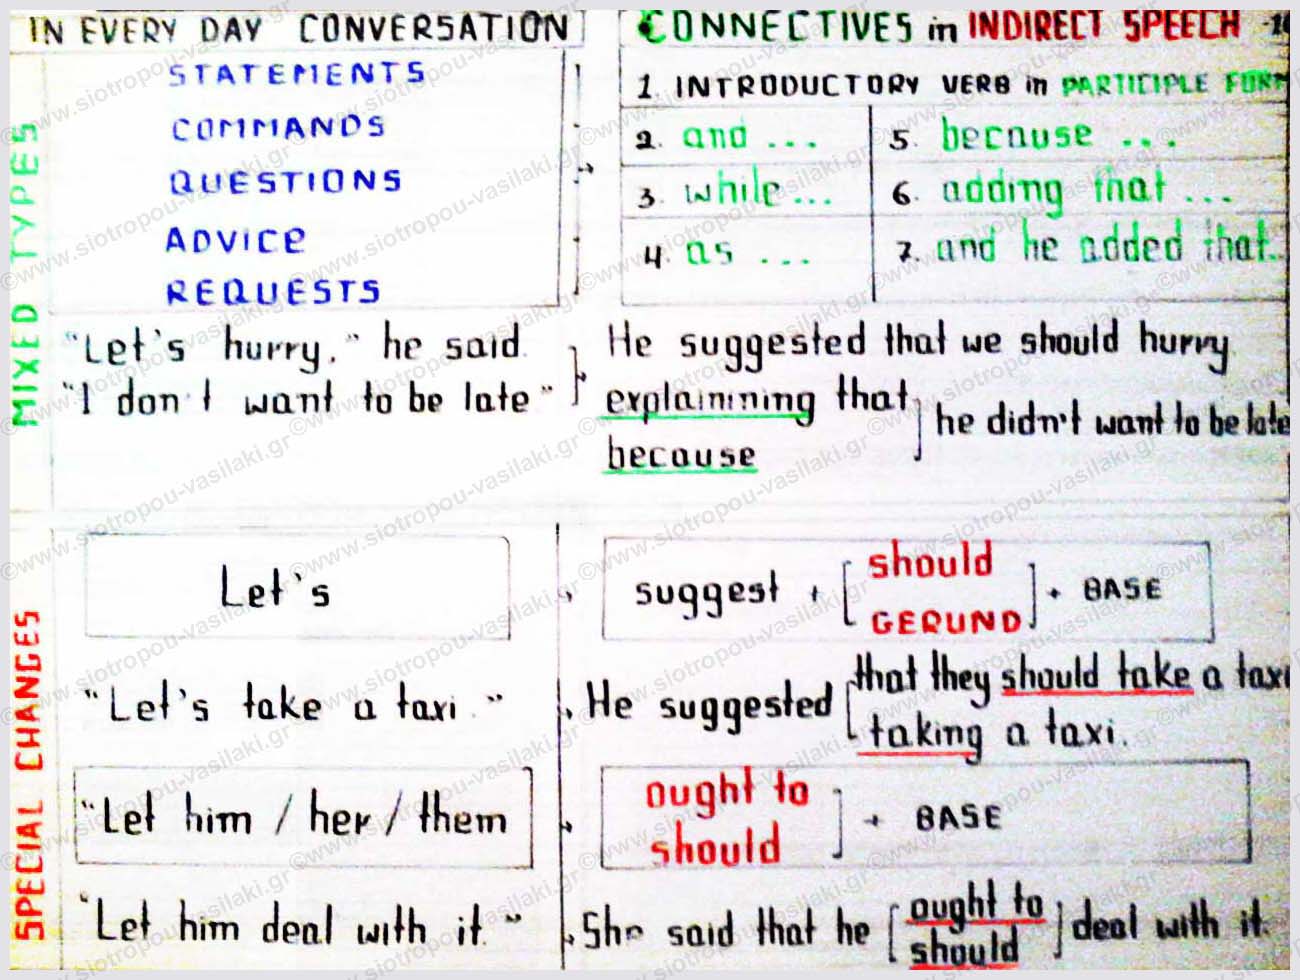 IN EVERY DAY CONVERSATION
CONNECTIVES in INDIRECT SPEECH
MIXED TYPES
STATEMENTS
COMMANDS
QUESTIONS
ADVICE
REQUESTS
1. INTRODUCTORY VERB in PARTICIPLE FORM
2. and ...
3. while ...
4. as ...
5. because ...
6. adding that ...
7. and he added that...
"Let's hurry," he said.
"I don't want to be late"
He suggested that we should hurry
explainining that
because
he didn't want to be late
SPECIAL CHANGES
Let's
suggest + [ should
GERUND ] + BASE
"Let's take a taxi."
He suggested
that they should take a taxi
taking a taxi.
"Let him / her / them
ought to
should
+ BASE
"Let him deal with it."
She said that he [ ought to
should ] deal with it.
©www.siotropou-vasilaki.gr